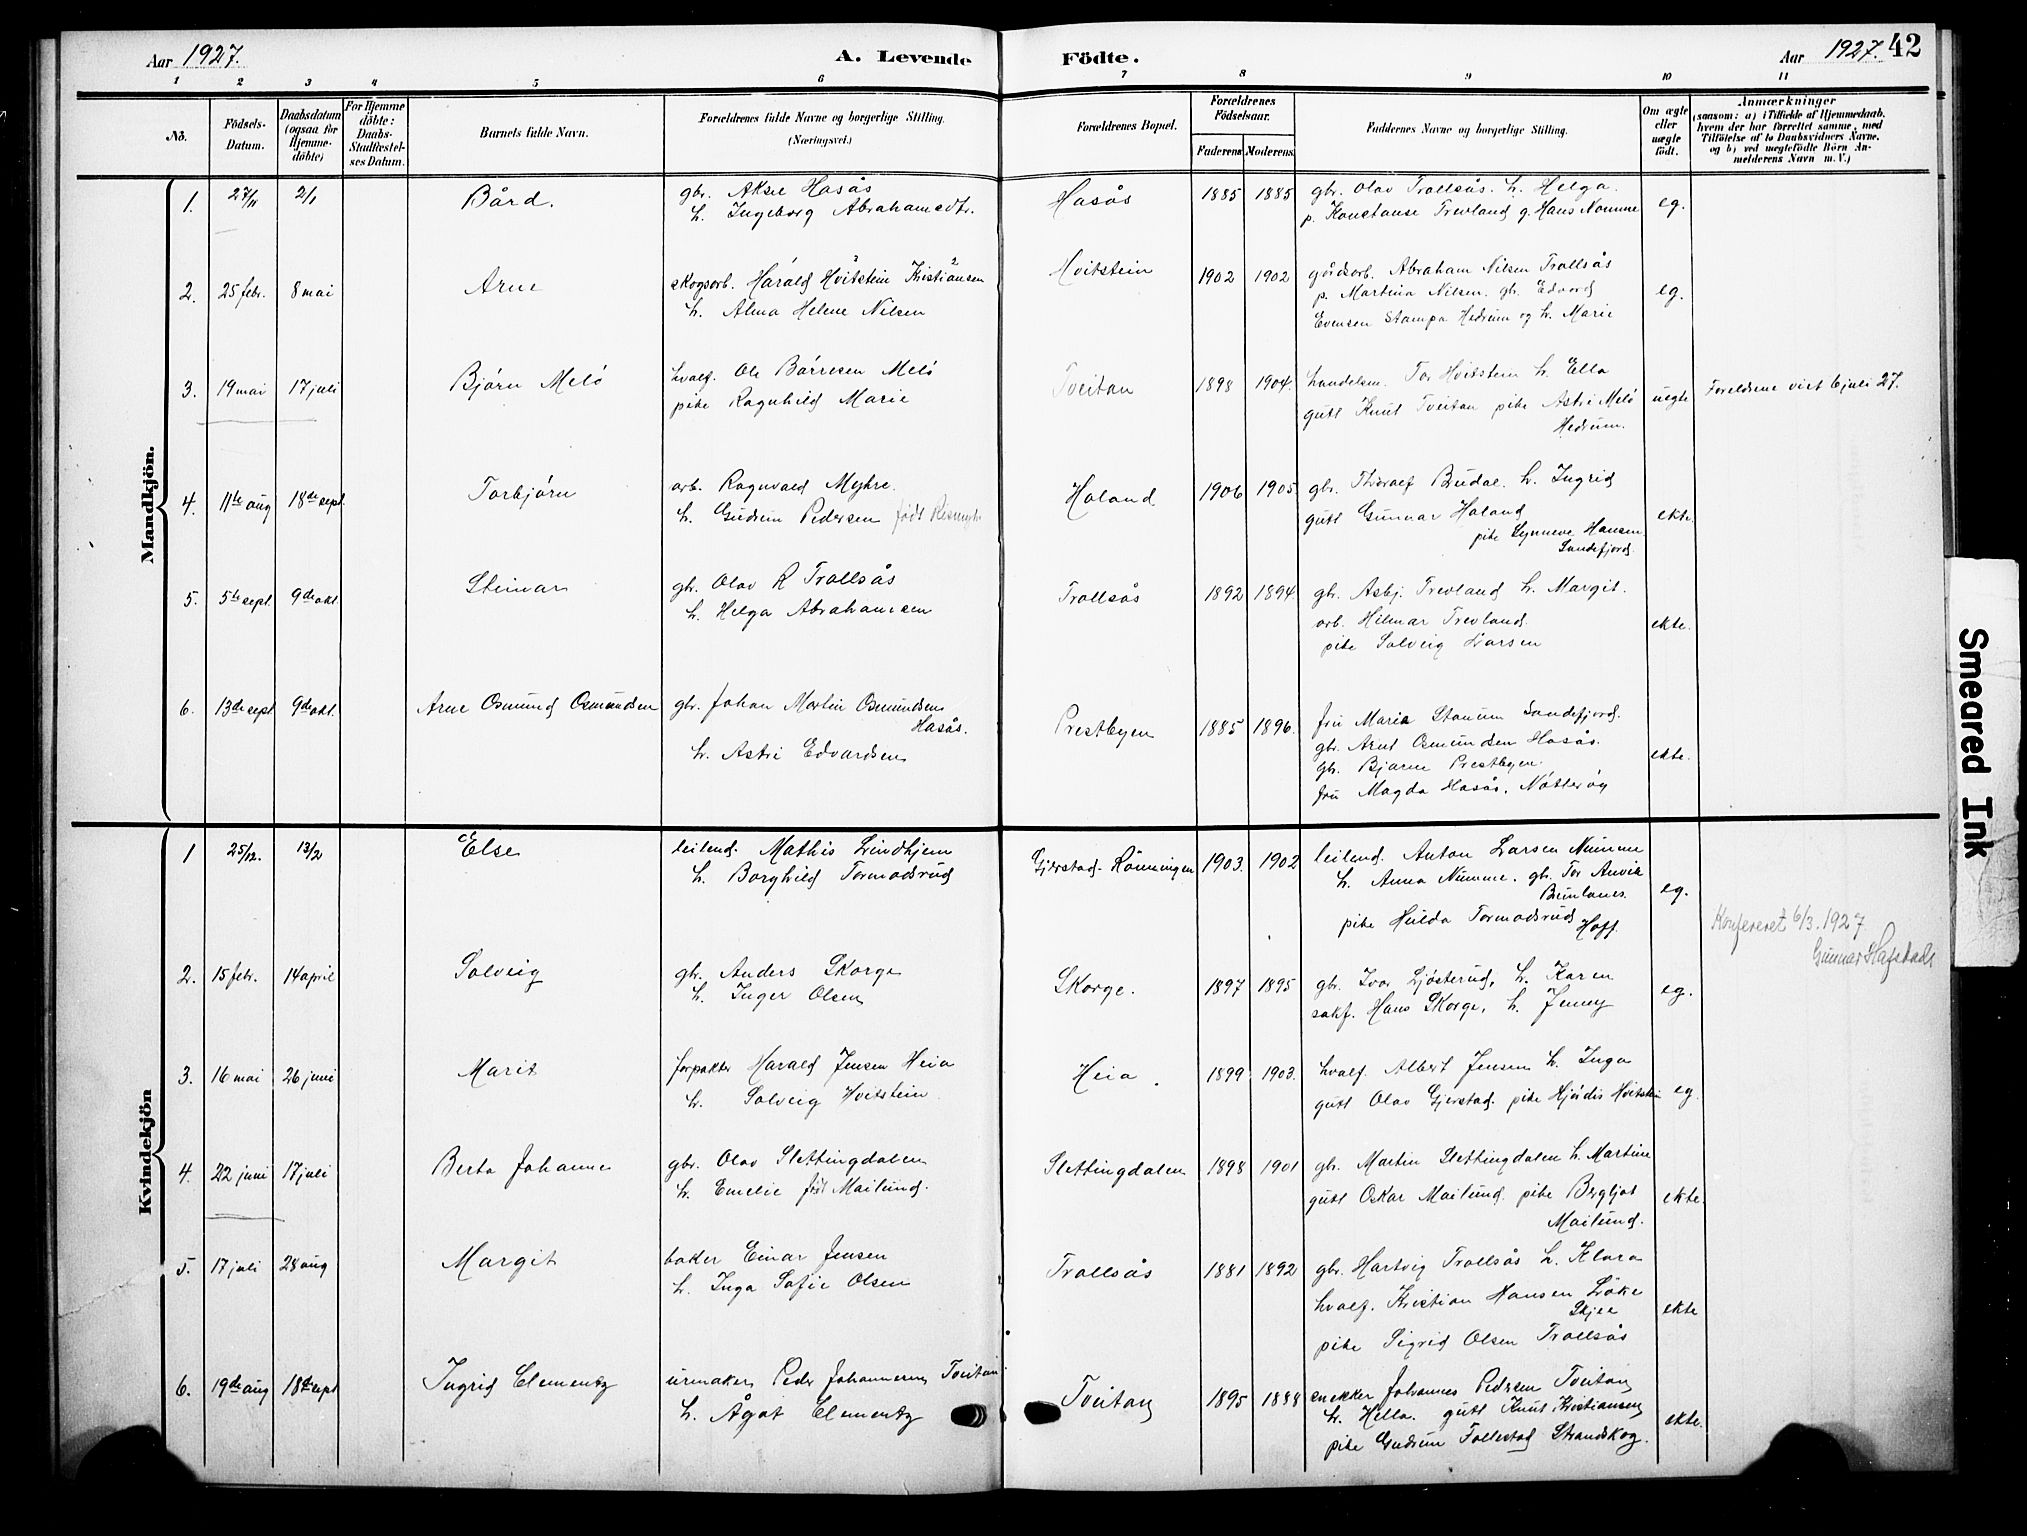 Aar 1927.
A. Levende Födte.
Aar 1927. 42
1 2 3 4 5 6 7 8 9 10 11
No.
Födsels-Datum.
Daabsdatum (ogsaa for Hjemmedöbte)
For Hjemmedöbte: Daabs-Stadfestelses Datum.
Barnets fulde Navn.
Forældrenes fulde Navne og borgerlige Stilling. (Næringsvei.)
Forældrenes Bopæl.
Forældrenes Födselsaar.
Faderens Moderens
Faddernes Navne og borgerlige Stilling.
Om ægte eller uægte födt.
Anmærkninger (saasom: a) i Tilfælde af Hjemmedaab, hvem der har forrettet samme, med Tilföielse af to Daabsvidners Navne, og b) ved uægtefödte Börn Anmelderens Navn m. V.)
Mandkjön.
1. 27/11 2/1 Bård. gbr. Aksel Hasås
h. Ingeborg Abrahamsdtr. Hasås 1885 1885 gbr. Olav Trollsås. h. Helga.
p. Konstanse Trevland g. Hans Nomme eg.
2. 25 febr. 8 mai Arne skogsarb. Harald Hvitstein Kristiansen
h. Alma Helene Nilsen Hvitstein 1902 1902 gårdsarb. Abraham Nilsen Trollsås
p. Martina Nilsen. gb. Edvard
Evensen Stampa Hedrum og h. Marie eg.
3. 19 mai 17 juli Bjørn Melö hvalf. Ole Börresen Melö
pike Ragnhild Marie Tveitan 1898 1904. handelsm. Tor Hvitstein h. Ella
gutt Knut Tveitan pike Astri Melö
Hedrum. uegte Foreldrene viet 6 juli 27.
4. 11te aug 18de sept. Torbjørn arb. Ragnvald Myhre.
h. Gudrun Pedersen født Holand 1906 1905 gbr. Thoralf Brudal h. Ingrid
gutt Gunnar Holand
pike Synneve Hansen
Sandefjord. ekte.
5. 5te sept. 9de okt. Steinar gbr. Olav R Trollsås
h. Helga Abrahamsen Trollsås 1892 1894 gbr. Asbj. Trevland h. Margit.
arb. Hilmar Trevland.
pike Solveig Larsen ekte.
6. 13de sept 9de okt. Arne Osmund Osmundsen gbr. Johan Martin Osmundsen
Hasås.
h. Astri Edvardsen Prestbyen 1885 1896. fru Maria Stanum Sandefjord.
gbr. Arnt Osmundsen Hasås.
gbr. Bjarne Prestbyen.
fru Magda Hasås, Nötteröy ekte.
Kvindekjön
1 25/12. 13/2 Else leilend. Mathis Lindhjem
h. Borghild Tormodsrud Gjerstad-Rönningen 1903. 1902 leilend. Anton Larsen Numme
h. Anna Numme. gb. Tor Anvik
Brunlanes.
pike Hulda Tormodsrud Hoff. eg.
Konfereret 6/3. 1927
Gunnar Hafstad
2. 15 febr. 14 april Solveig gbr. Anders Skorge
h. Inger Olsen Skorge. 1897 1895 gbr. Ivar Ljösterud, h. Karen
sakf. Hans Skorge, h. Jenny eg.
3. 16 mai 26 juni Marit forpakter Harald Jensen Heia
h. Solveig Hvitstein. Heia. 1899 1903. hvalf. Albert Jensen h. Inga
gutt Olav Gjerstad. pike Hjördis Hvitstein eg.
4. 22 juni 17 juli Berta Johanne gbr. Olav Slettingdalen
h. Emelie født Mailund. Slettingdalen 1898 1901 gbr. Martin Slettingdalen h. Martine
gutt Oskar Mailund. pike Bergljot
Mailund. ekte
5. 17 juli 28 aug Margit baker Einar Jensen
h. Inga Sofie Olsen Trollsås 1881 1892 gbr. Hartvig Trollsås h. Klara
hvalf. Kristian Hansen Löke
Skjee
pike Sigrid Olsen Trollsås ekte
6. 19de aug 18de sept Ingrid Clementz urmaker Peder Johannesen Tveitan
h. Ågot Clementz Tveitan 1895 1888 snekker Johannes Pedersen Tveitan
h. Hella. gutt Knut Kristiansen
pike Gudrun Follestad Strandskog. ekte.
Smeared Ink